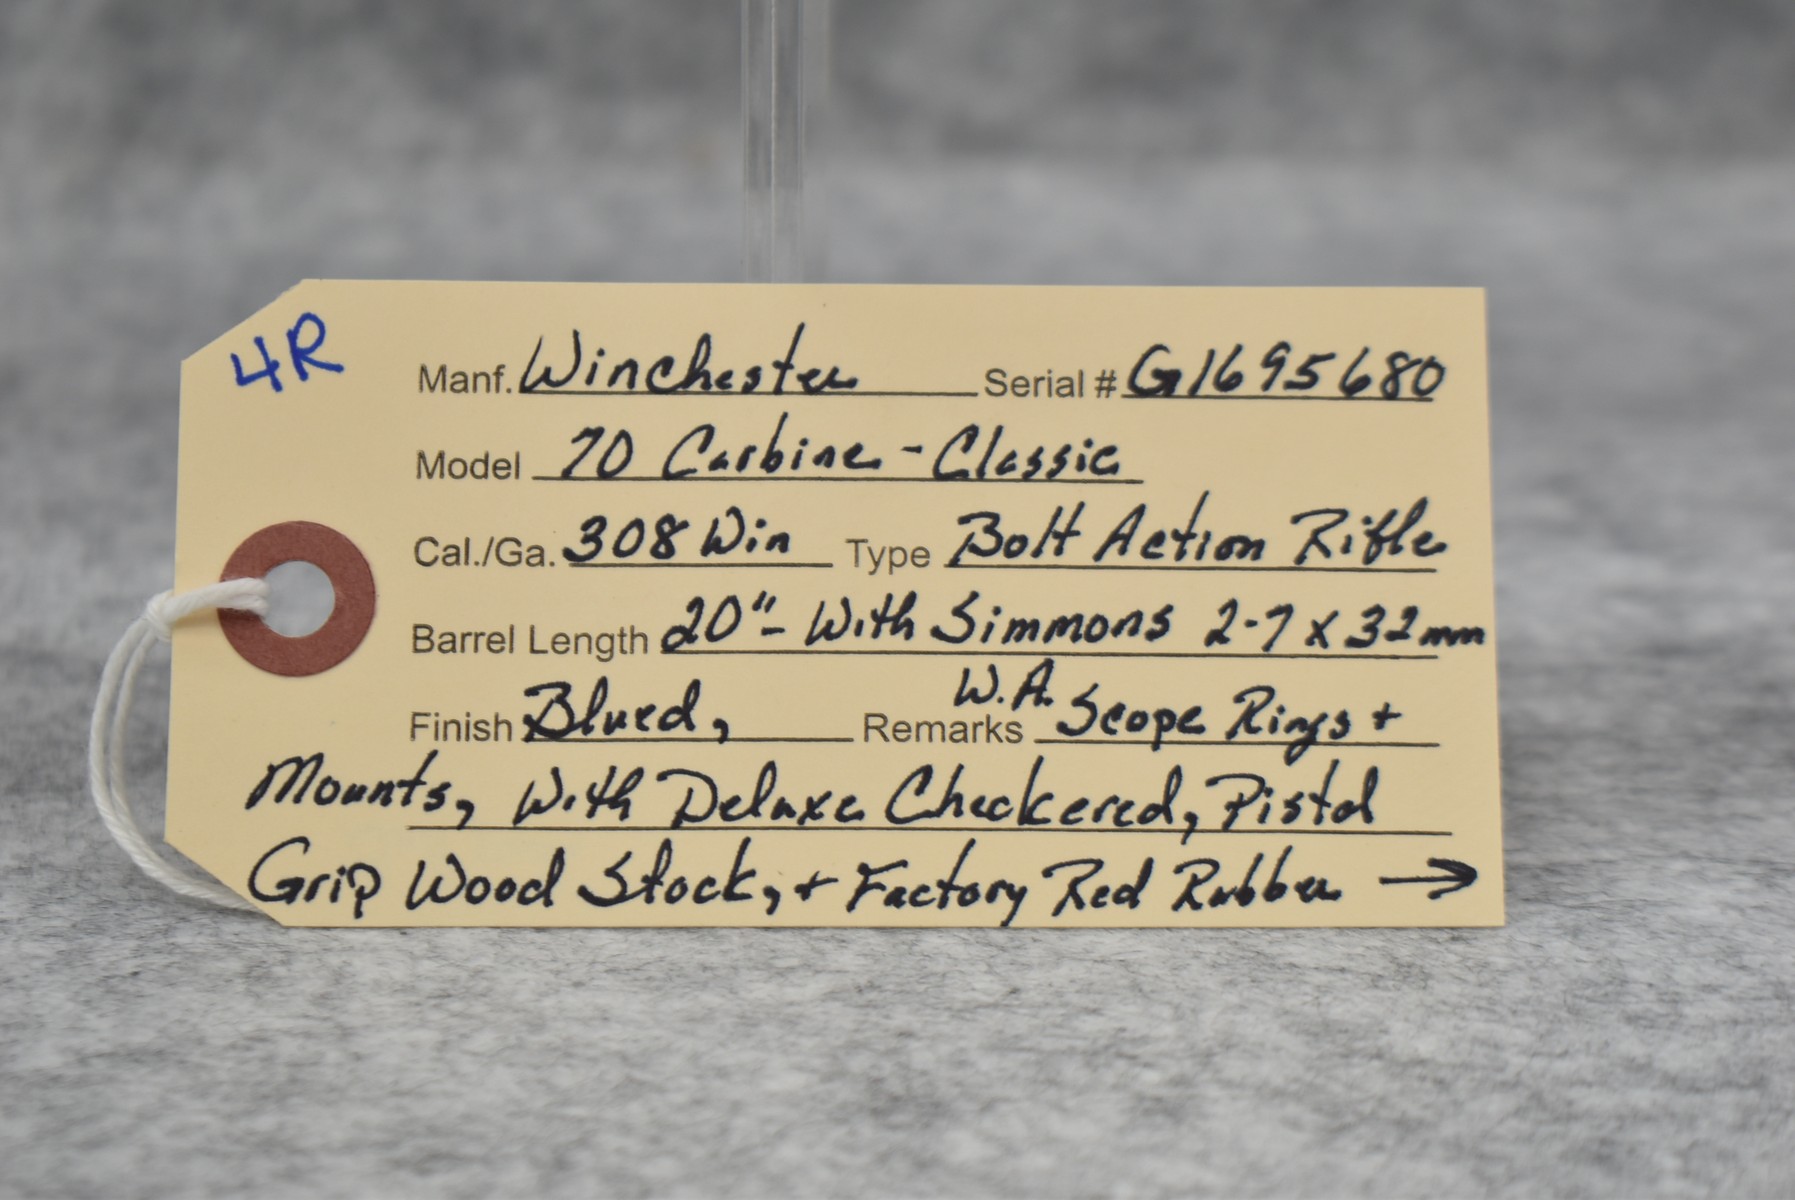 4R
Manf. Winchester Serial # G1695680
Model 70 Carbine - Classic
Cal./Ga. 308 Win Type Bolt Action Rifle
Barrel Length 20" - With Simmons 2-7 x 32mm
Finish Blued, Remarks W.A. Scope Rings +
Mounts, With Deluxe Checkered, Pistol
Grip Wood Stock, + Factory Red Rubber →